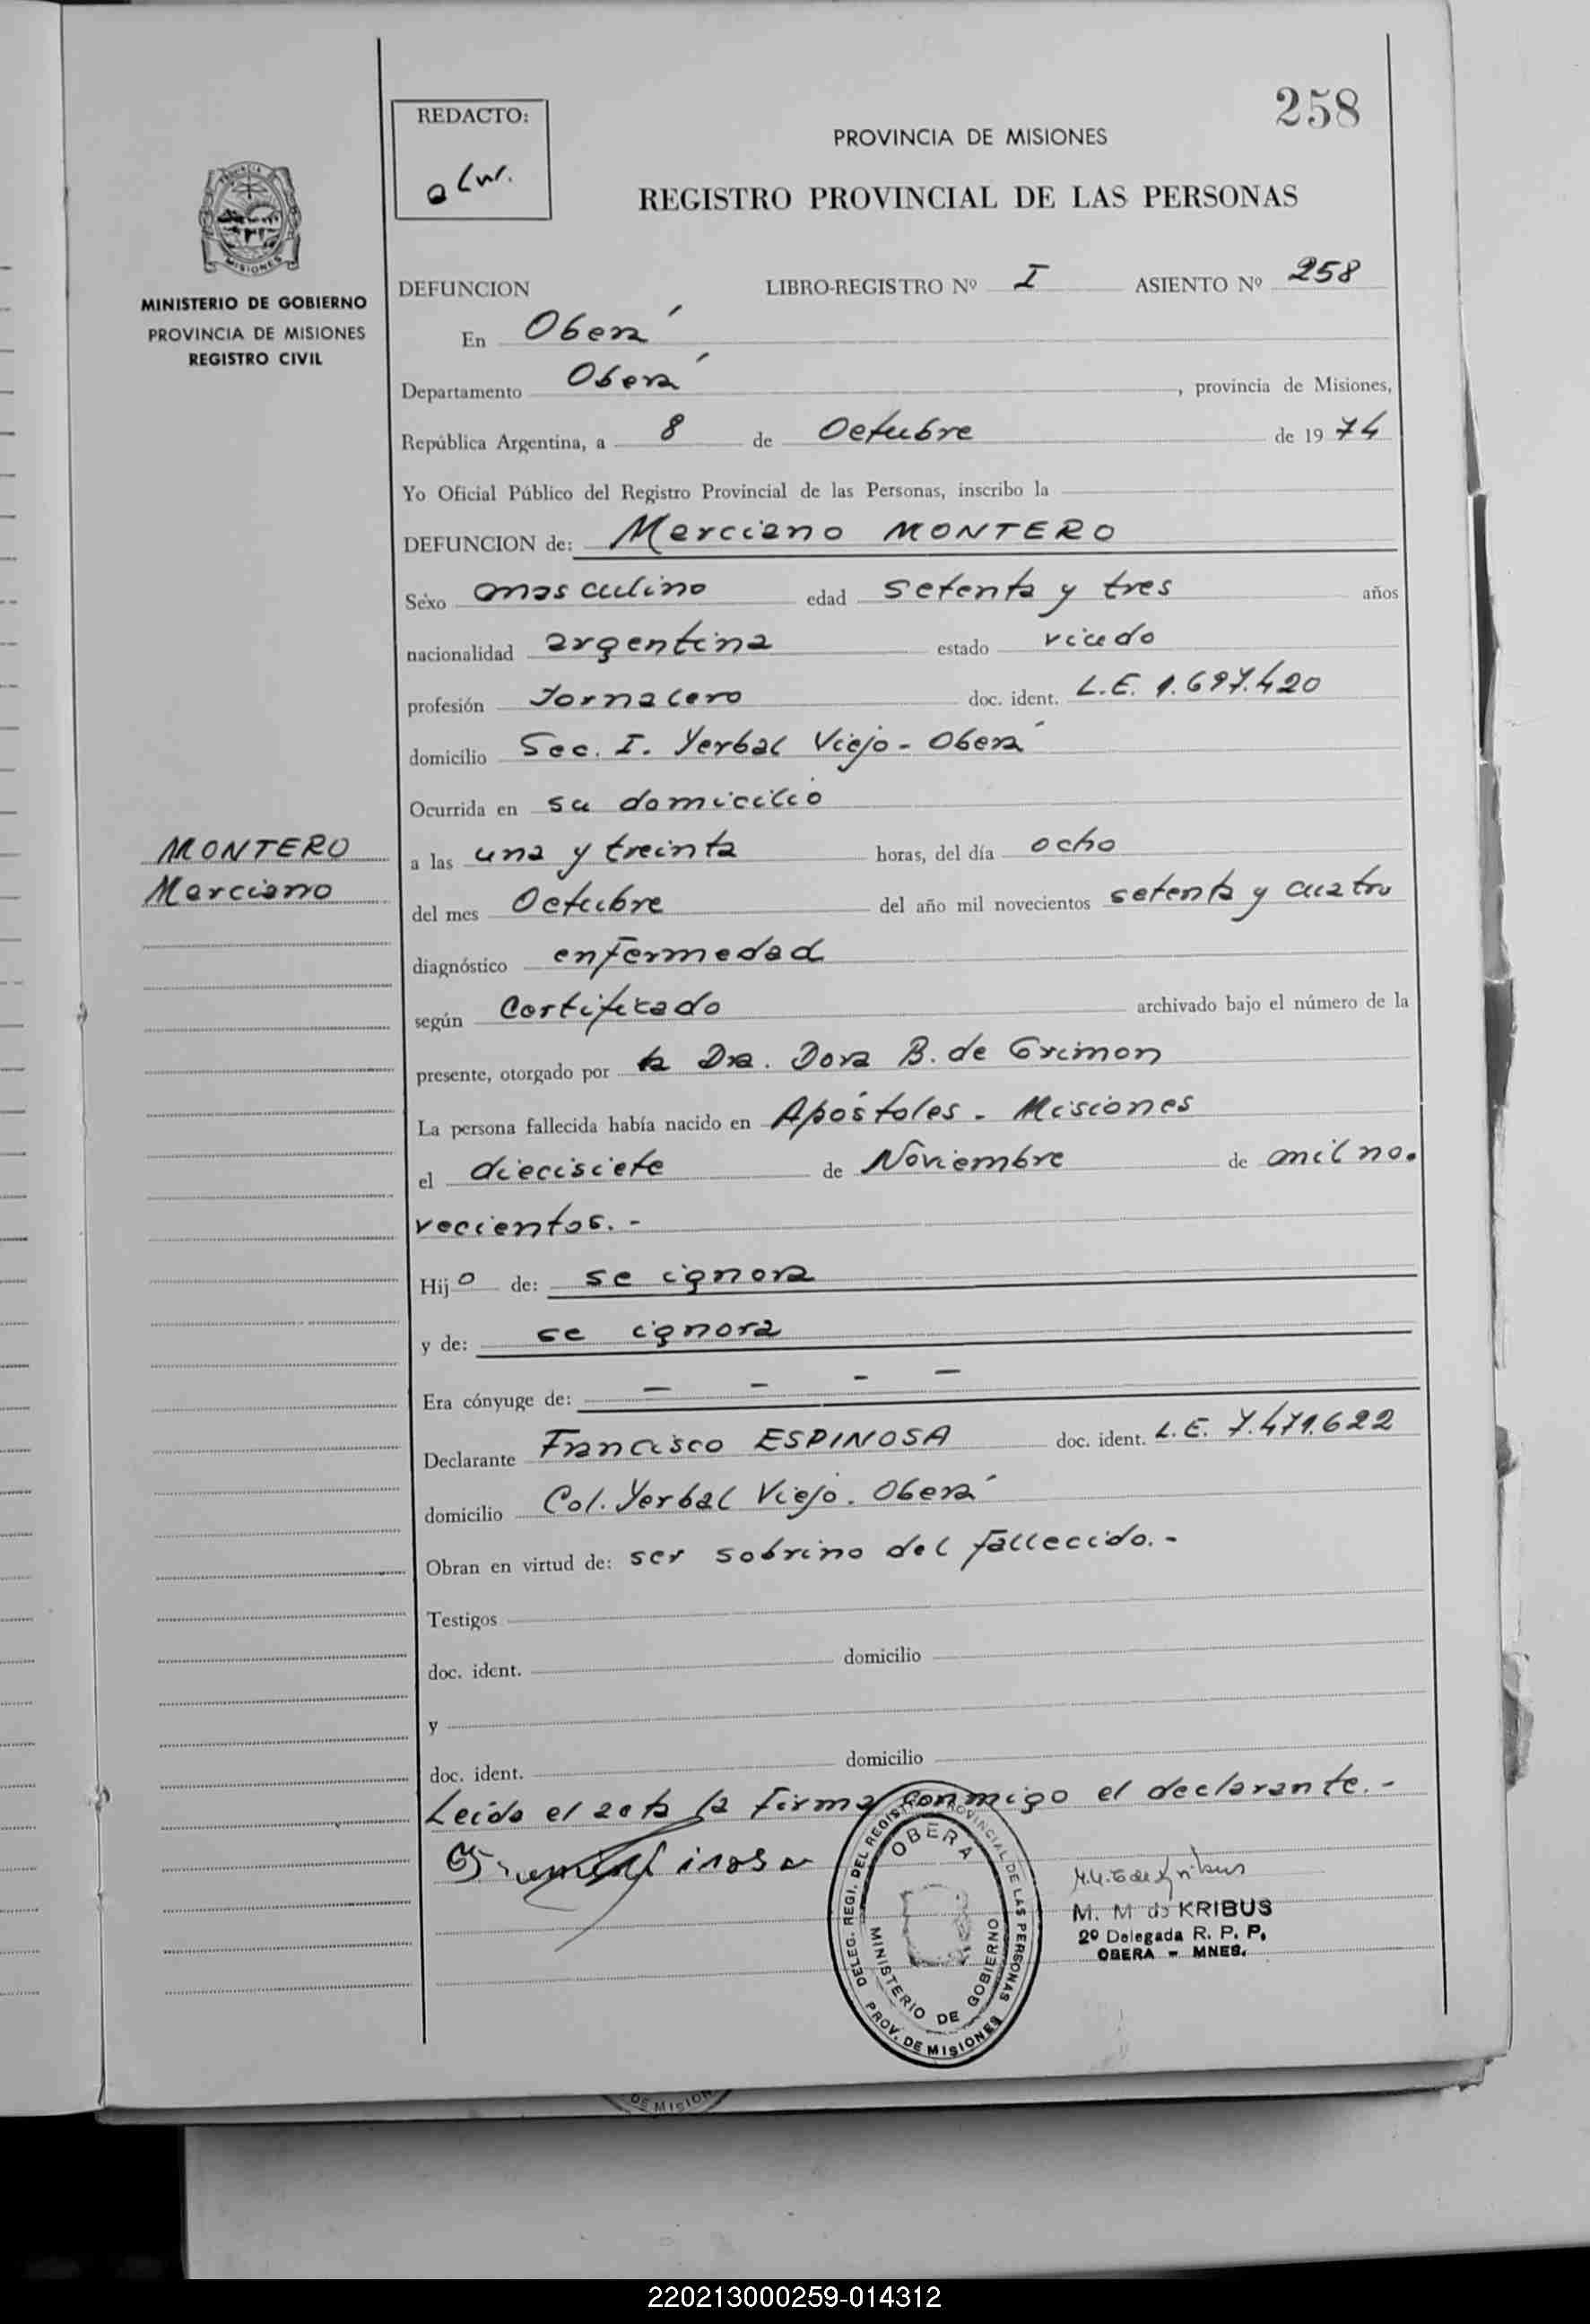 258
REDACTO:
PROVINCIA DE MISIONES
REGISTRO PROVINCIAL DE LAS PERSONAS
MISIONES
MINISTERIO DE GOBIERNO
PROVINCIA DE MISIONES
REGISTRO CIVIL
DEFUNCION LIBRO-REGISTRO Nº I ASIENTO Nº 258
En Oberá
Departamento Oberá, provincia de Misiones,
República Argentina, a 8 de Octubre de 1974
Yo Oficial Público del Registro Provincial de las Personas, inscribo la
DEFUNCION de: Marciano MONTERO
Sexo masculino edad setenta y tres años
nacionalidad argentina estado viudo
profesión Jornalero doc. ident. L.E. 1.697.420
domicilio Sec. I. Yerbal Viejo - Oberá
Ocurrida en su domicilio
MONTERO
Marciano
a las una y treinta horas, del día ocho
del mes Octubre del año mil novecientos setenta y cuatro
diagnóstico enfermedad
según Certificado archivado bajo el número de la
presente, otorgado por la Dra. Dora B. de Grimon
La persona fallecida había nacido en Apóstoles - Misiones
el diecisiete de Noviembre de mil no-
vecientos.-
Hijo de: se ignora
y de: se ignora
Era cónyuge de: - - - -
Declarante Francisco ESPINOSA doc. ident. L.E. 7.471.622
domicilio Col. Yerbal Viejo. Oberá
Obran en virtud de: ser sobrino del fallecido.-
Testigos
doc. ident. domicilio
y
doc. ident. domicilio
Leída el acta la firma conmigo el declarante.-
DELEG. REGI. DEL REGIST. PROVINCIAL DE LAS PERSONAS
OBERA
MINISTERIO DE GOBIERNO
PROV. DE MISIONES
M. M de KRIBUS
2º Delegada R. P. P.
OBERA - MNES.
DE MISION
220213000259-014312